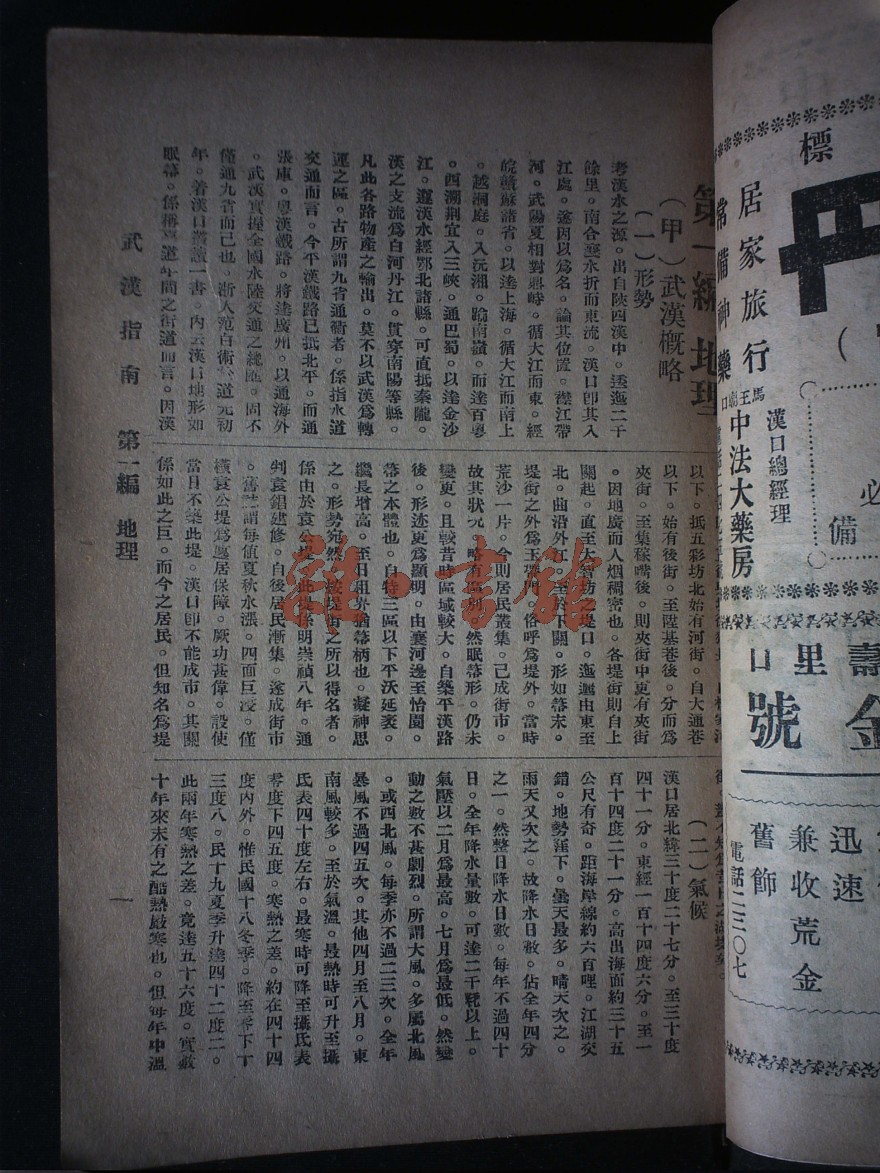 第一編 地理
（甲）武漢概略
（一）形勢
考漢水之源。出自陝西漢中。逶迤二千
餘里。南合襄水折而東流。漢口卽其入
江處。遂因以爲名。論其位置。襟江帶
河。武陽夏相對峙。循大江而東。經
皖贛蘇諸省。以達上海。循大江而南上
。越洞庭。入沅湘。踰南嶺。而達百粵
。西溯荆宜入三峽。通巴蜀。以達金沙
江。遵漢水經鄂北諸縣。可直抵秦隴。
漢之支流爲白河丹江。貫穿南陽等縣。
凡此各路物產之輸出。莫不以武漢爲轉
運之區。古所謂九省通衢者。係指水道
交通而言。今平漢鐵路已抵北平。而通
張庫。粵漢鐵路。將達廣州。以通海外
。武漢實握全國水陸交通之總匯。固不
僅通九省而已也。浙人范白術 道元初
年。着漢口叢談一書。內云漢口地形如
眠幕。係稱 道年間之街道而言。因漢
以下。抵五彩坊北始有河街。自大通巷
以下。始有後街。至陞基巷後。分而爲
夾街。至集稼嘴後。則夾街中更有夾街
。因地廣而人烟稠密也。各堤街則自上
關起。直至大智坊堤口。迤邐由東至
北。曲沿外江。至 下關。形如幕末。
堤街之外爲玉帶門。俗呼爲堤外。當時
荒沙一片。今則居民叢集。已成街市。
故其狀元 略有區別。然眠幕形。仍未
變更。且較昔時區域較大。自築平漢路
後。形迹更爲顯明。由襄河邊至怡園。
幕之本體也。自特三區以下平沃延袤。
繼長增高。至日租界猶幕柄也。凝神思
之。形勢宛然。 堤街之所以得名者。
係由於袁公堤。此堤係明崇禎八年。通
判袁錩建修。自後居民漸集。遂成街市
。舊誌謂每值夏秋水漲。四面巨浸。僅
賴袁公堤爲廛居保障。厥功甚偉。設使
當日不築此堤。漢口卽不能成市。其關
係如此之巨。而今之居民。但知名爲堤
（二）氣候
漢口居北緯三十度二十七分。至三十度
四十一分。東經一百十四度六分。至一
百十四度二十一分。高出海面約三十五
公尺有奇。距海岸線約六百哩。江湖交
錯。地勢窪下。曇天最多。晴天次之。
雨天又次之。故降水日數。佔全年四分
之一。然整日降水日數。每年不過四十
日。全年降水量數。可達二千粍以上。
氣壓以二月爲最高。七月爲最低。然變
動之數不甚劇烈。所謂大風。多屬北風
。或西北風。每季亦不過二三次。全年
暴風不過四五次。其他四月至八月。東
南風較多。至於氣溫。最熱時可升至攝
氏表四十度左右。最寒時可降至攝氏表
零度下四五度。寒熱之差。約在四十四
度內外。惟民國十八冬季。降至零下十
三度八。民十九夏季升達四十二度二。
此兩年寒熱之差。竟達五十六度。實數
十年來未有之酷熱嚴寒也。但每年中溫
武漢指南 第一編 地理
一
雜·書館
標
居家旅行
常備神藥
必
備
漢口總經理
馬王廟口
中法大藥房
壽
里
口
金
號
迅速
兼收荒金
舊飾
電話二二三〇七